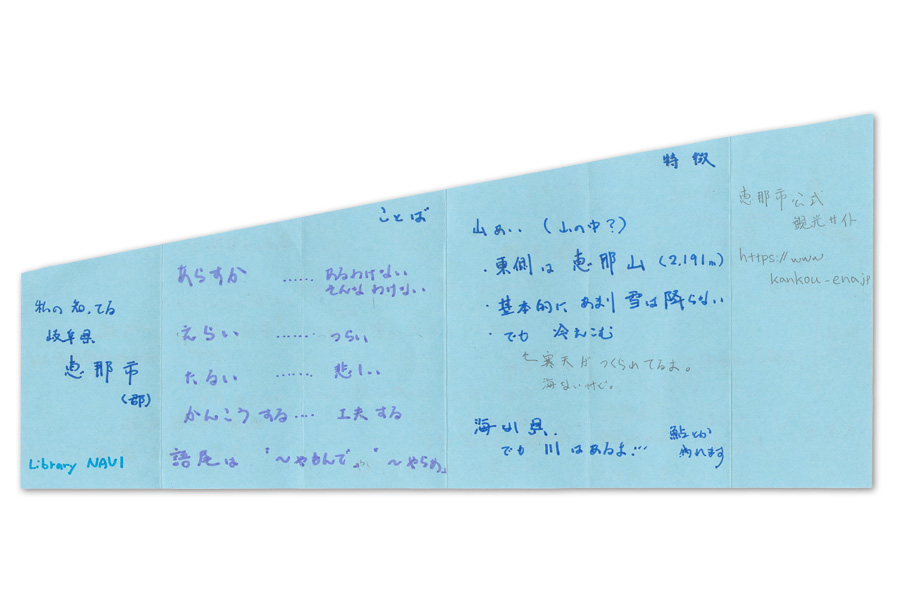 私の知ってる
岐阜県
恵那市
(郡)
Library NAVI
ことば
あらすか …… あるわけない
そんなわけない
えらい ……… つらい
たるい ……… 悲しい
かんこうする…… 工夫する
語尾は "〜やもんで。" "〜やらぁ。
特徴
山あい (山の中?)
・東側は 恵那山 (2,191m)
・基本的にあまり雪は降らない
・でも 冷えこむ
←寒天がつくられてるよ。
海ないけど。
海なし県.
でも 川はあるよ…
鮎とか
釣れます
恵那市公式
観光サイト
https://www
kankou-ena.jp